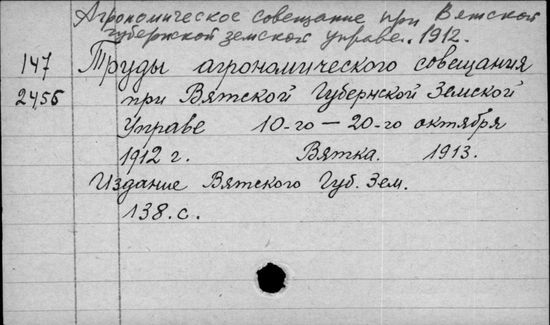 Агрономическое совещание при Вятской
губернской земской управе. 1912.
147 Труды агрономического совещания
2455 при Вятской Губернской Земской
Управе 10-го — 20-го октября
1912 г. Вятка. 1913.
Издание Вятского Губ. Зем.
138. с.